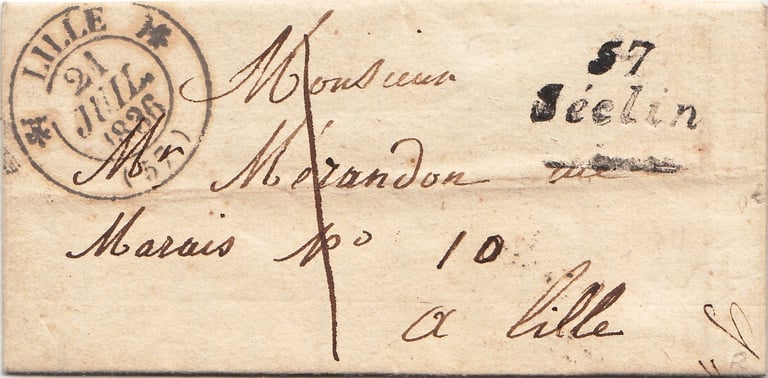 LILLE
21
JUIL.
1836
(57)
57
Séclin
Monsieur
Mr Mérandon rue
Marais No 10
a lille